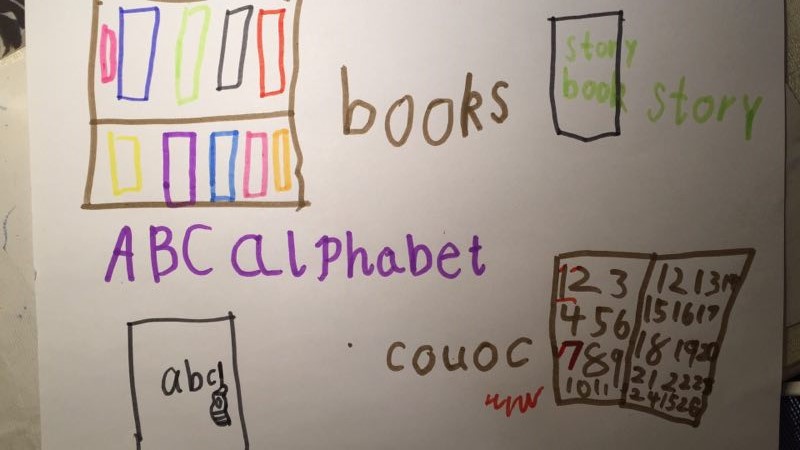 books
story
book
story
ABC alphabet
abcd
couoc
12 3
4 5 6
7 8 9
10 11
12 13
15 16 17
18 19 20
21 22 23